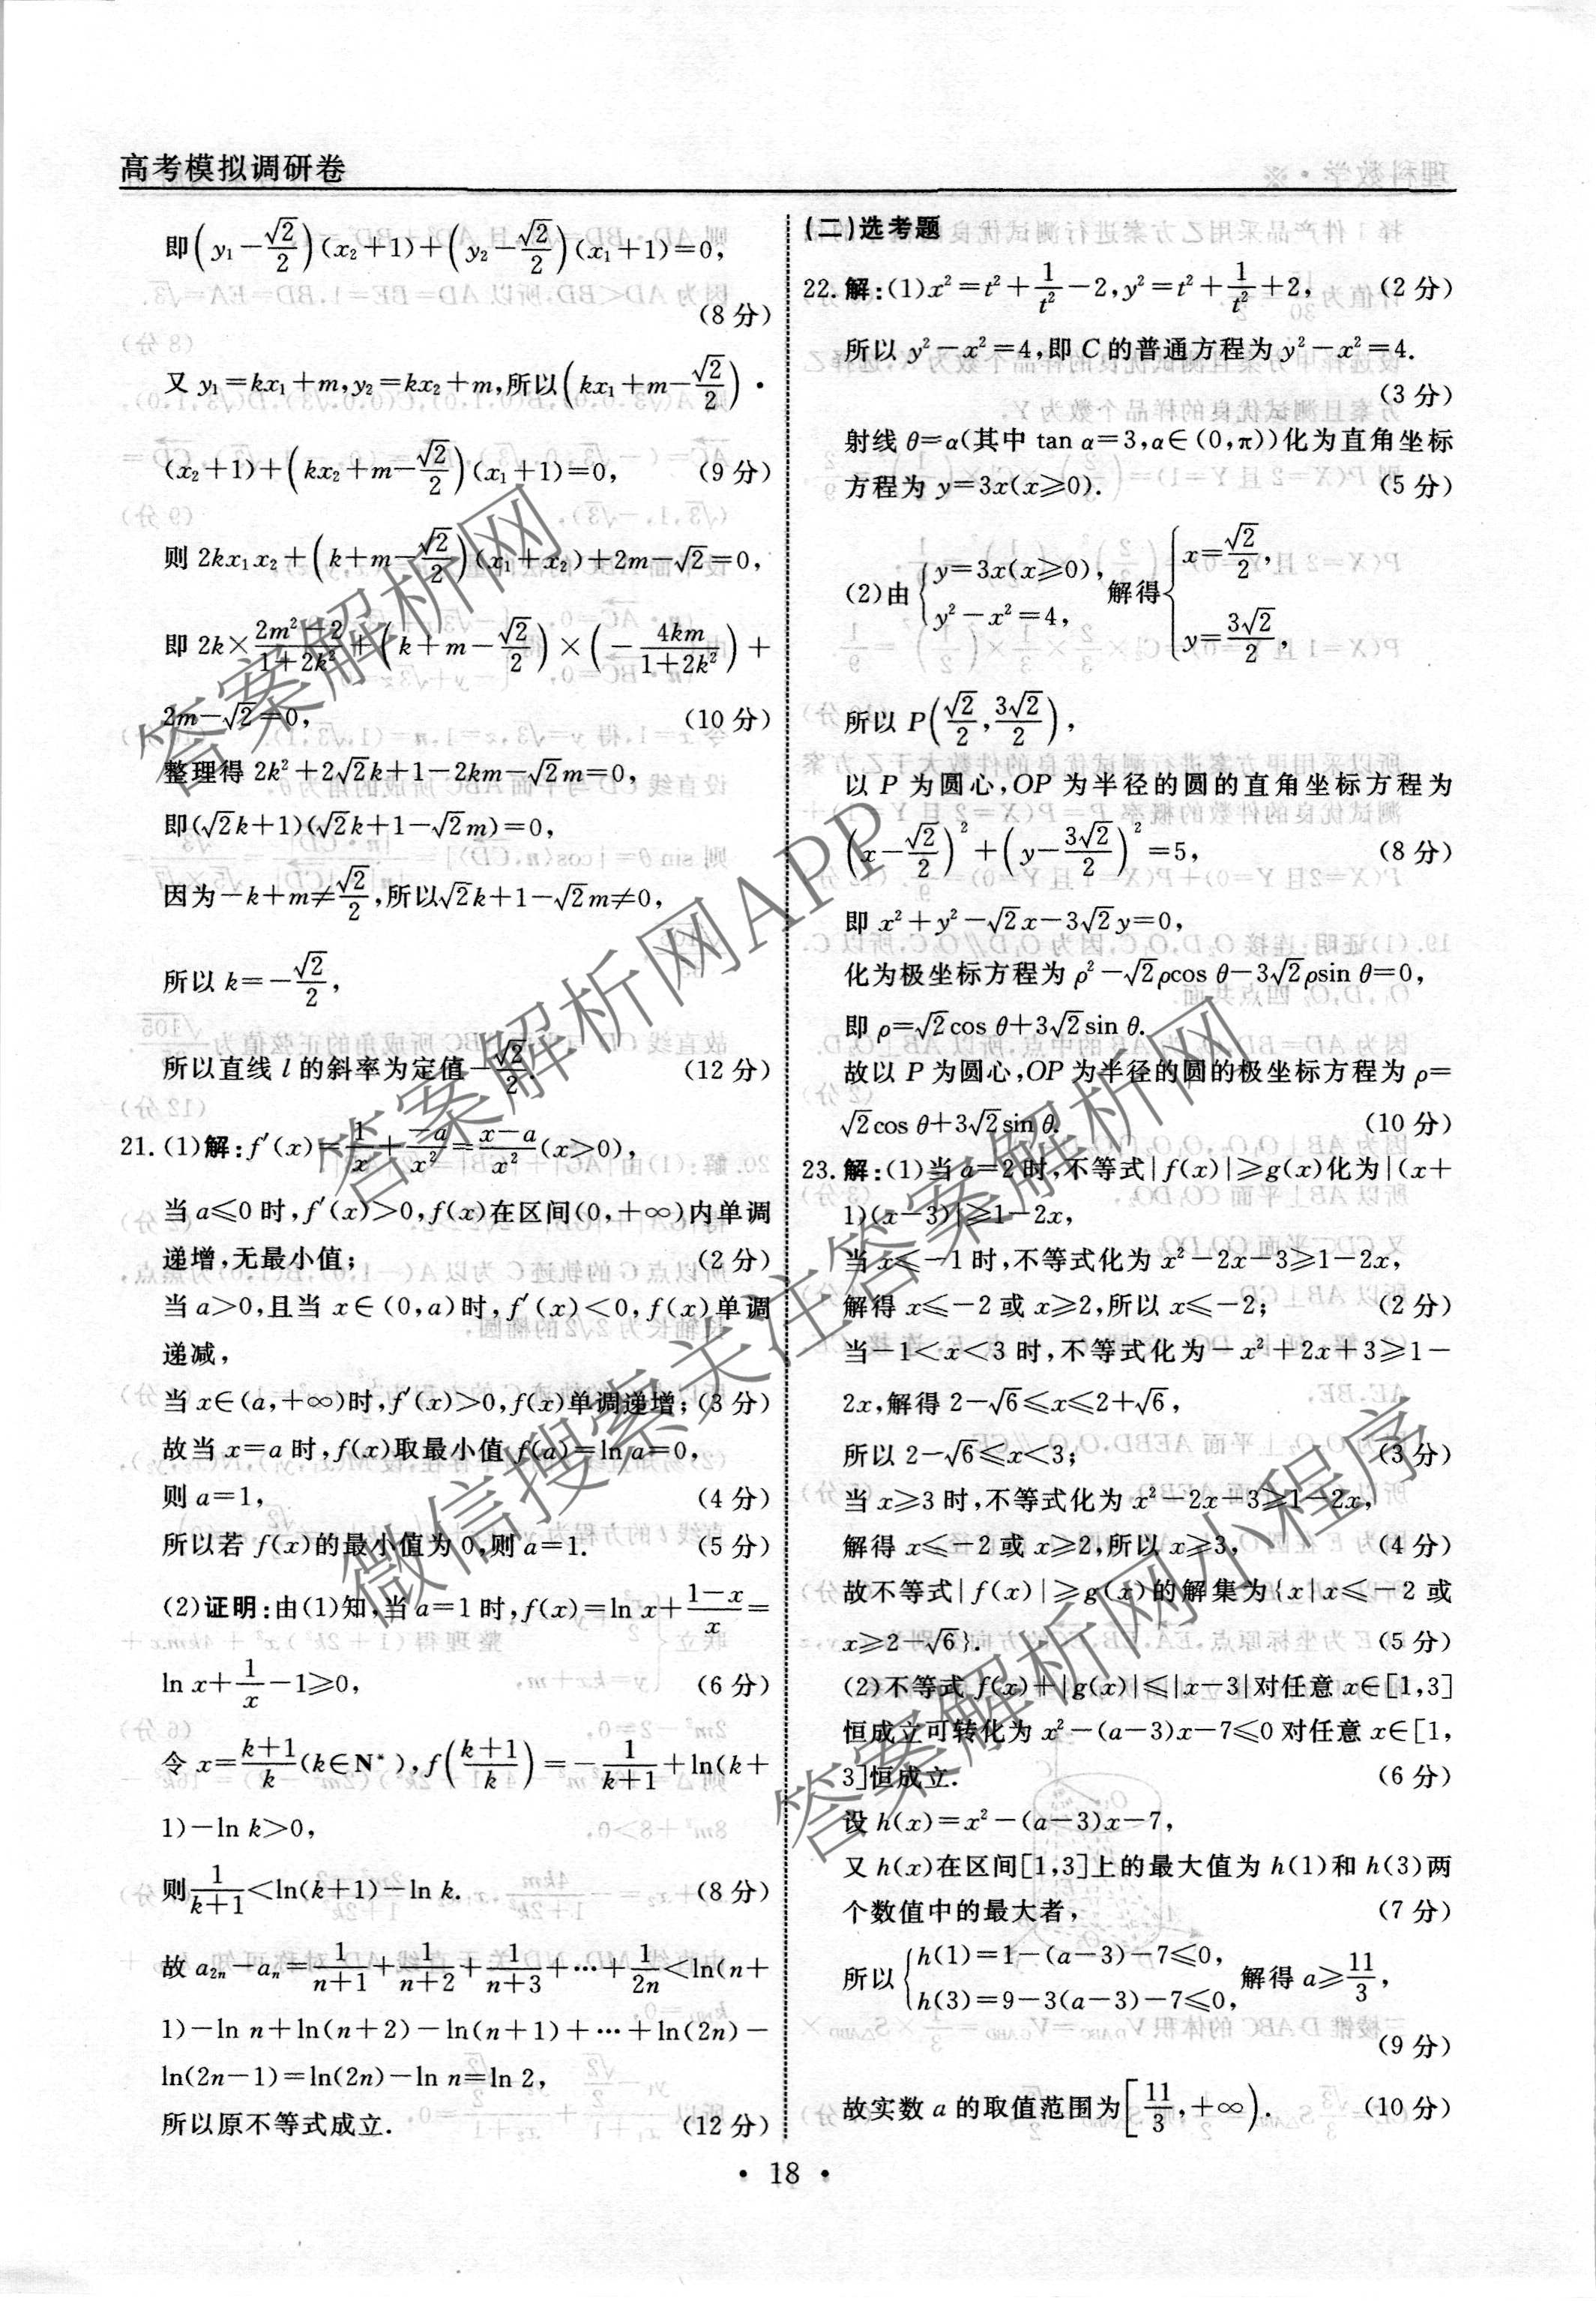 高考模拟调研卷
即(y₁-√2/2)(x₂+1)+(y₂-√2/2)(x₁+1)=0,
(8分)
又 y₁=kx₁+m,y₂=kx₂+m,所以(kx₁+m-√2/2)·
(x₂+1)+(kx₂+m-√2/2)(x₁+1)=0, (9分)
则 2kx₁x₂+(k+m-√2/2)(x₁+x₂)+2m-√2=0,
即 2k×(2m²-2)/(1+2k²)+(k+m-√2/2)×(-4km/(1+2k²))+
2m-√2=0, (10分)
整理得 2k²+2√2k+1-2km-√2m=0,
即(√2k+1)(√2k+1-√2m)=0,
因为-k+m≠√2/2,所以√2k+1-√2m≠0,
所以 k=-√2/2,
所以直线 l 的斜率为定值-√2/2. (12分)
21. (1)解:f′(x)=1/x+(-a)/x²=(x-a)/x²(x>0),
当 a≤0 时,f′(x)>0,f(x)在区间(0,+∞)内单调
递增,无最小值; (2分)
当 a>0,且当 x∈(0,a)时,f′(x)<0,f(x)单调
递减,
当 x∈(a,+∞)时,f′(x)>0,f(x)单调递增; (3分)
故当 x=a 时,f(x)取最小值 f(a)=ln a=0,
则 a=1, (4分)
所以若 f(x)的最小值为 0,则 a=1. (5分)
(2)证明:由(1)知,当 a=1 时,f(x)=ln x+(1-x)/x=
ln x+1/x-1≥0, (6分)
令 x=(k+1)/k(k∈N*),f((k+1)/k)=-1/(k+1)+ln(k+
1)-ln k>0,
则1/(k+1)<ln(k+1)-ln k. (8分)
故 a₂ₙ-aₙ=1/(n+1)+1/(n+2)+1/(n+3)+…+1/2n<ln(n+
1)-ln n+ln(n+2)-ln(n+1)+…+ln(2n)-
ln(2n-1)=ln(2n)-ln n=ln 2,
所以原不等式成立. (12分)
(二)选考题
22. 解:(1)x²=t²+1/t²-2,y²=t²+1/t²+2, (2分)
所以 y²-x²=4,即 C 的普通方程为 y²-x²=4.
(3分)
射线 θ=α(其中 tan α=3,α∈(0,π))化为直角坐标
方程为 y=3x(x≥0). (5分)
(2)由{y=3x(x≥0), y²-x²=4, 解得{x=√2/2, y=3√2/2,
所以 P(√2/2,3√2/2),
以 P 为圆心,OP 为半径的圆的直角坐标方程为
(x-√2/2)²+(y-3√2/2)²=5, (8分)
即 x²+y²-√2x-3√2y=0,
化为极坐标方程为 ρ²-√2ρcos θ-3√2ρsin θ=0,
即 ρ=√2cos θ+3√2sin θ.
故以 P 为圆心,OP 为半径的圆的极坐标方程为 ρ=
√2cos θ+3√2sin θ. (10分)
23. 解:(1)当 a=2 时,不等式|f(x)|≥g(x)化为|(x+
1)(x-3)|≥1-2x,
当 x≤-1 时,不等式化为 x²-2x-3≥1-2x,
解得 x≤-2 或 x≥2,所以 x≤-2; (2分)
当-1<x<3 时,不等式化为-x²+2x+3≥1-
2x,解得 2-√6≤x≤2+√6,
所以 2-√6≤x<3; (3分)
当 x≥3 时,不等式化为 x²-2x-3≥1-2x,
解得 x≤-2 或 x≥2,所以 x≥3, (4分)
故不等式|f(x)|≥g(x)的解集为{x|x≤-2 或
x≥2-√6}. (5分)
(2)不等式 f(x)+|g(x)|≤|x-3|对任意 x∈[1,3]
恒成立可转化为 x²-(a-3)x-7≤0 对任意 x∈[1,
3]恒成立. (6分)
设 h(x)=x²-(a-3)x-7,
又 h(x)在区间[1,3]上的最大值为 h(1)和 h(3)两
个数值中的最大者, (7分)
所以{h(1)=1-(a-3)-7≤0, h(3)=9-3(a-3)-7≤0, 解得 a≥11/3,
(9分)
故实数 a 的取值范围为[11/3,+∞). (10分)
· 18 ·
答案解析网
答案解析网APP
微信搜索关注答案解析网
答案解析网小程序